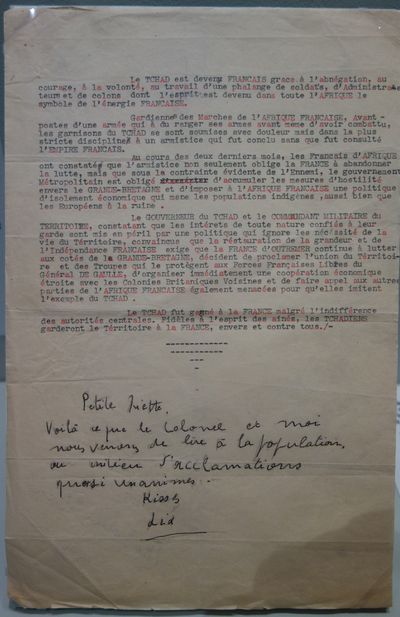 Le TCHAD est devenu FRANCAIS grace à l'abnégation, au
courage, à la volonté, au travail d'une phalange de soldats, d'Administra-
teurs et de colons dont l'esprit est devenu dans toute l'AFRIQUE le
symbole de l'énergie FRANCAISE.
Gardienne des Marches de l'AFRIQUE FRANCAISE, Avant-
postes d'une armée qui a dû ranger ses armes avant meme d'avoir combattu,
les garnisons du TCHAD se sont soumises avec douleur mais dans la plus
stricte discipline à un armistice qui fut conclu sans que fut consulté
l'EMPIRE FRANCAIS.
Au cours des deux derniers mois, les Francais d'AFRIQUE
ont constaté que l'armistice non seulement oblige la FRANCE à abandonner
la lutte, mais que sous la contrainte évidente de l'Ennemi, le gouvernement
Métropolitain est obligé d'accumuler les mesures d'hostilité
envers la GRANDE-BRETAGNE et d'imposer à l'AFRIQUE FRANCAISE une politique
d'isolement économique qui mene les populations indigènes, aussi bien que
les Européens à la ruine.
Le GOUVERNEUR du TCHAD et le COMMANDANT MILITAIRE du
TERRITOIRE, constatant que les intérets de toute nature confiés à leur
garde sont mis en péril par une politique qui ignore les nécéssité de la
vie du Térritoire, convaincus que la réstauration de la grandeur et de
l'Indépendance FRANCAISE exige que la FRANCE d'OUTREMER continue à lutter
aux cotés de la GRANDE-BRETAGNE, décident de proclamer l'union du Térritoi-
re et des Troupes qui le protègent aux Forces Françaises Libres du
Général DE GAULLE, d'organiser immédiatement une coopération économique
étroite avec les Colonies Britaniques Voisines et de faire appel aux autres
parties de l'AFRIQUE FRANCAISE également menacées pour qu'elles imitent
l'exemple du TCHAD.
Le TCHAD fut gagné à la FRANCE malgré l'indifférence
des autorités centrales. Fidèles à l'esprit des ainés, les TCHADIENS
garderont le Térritoire à la FRANCE, envers et contre tous./-
Petite
Voilà ce que le Colonel et moi
nous venons de lire à la population,
au milieu d'acclamations
quasi unanimes.
Kisses